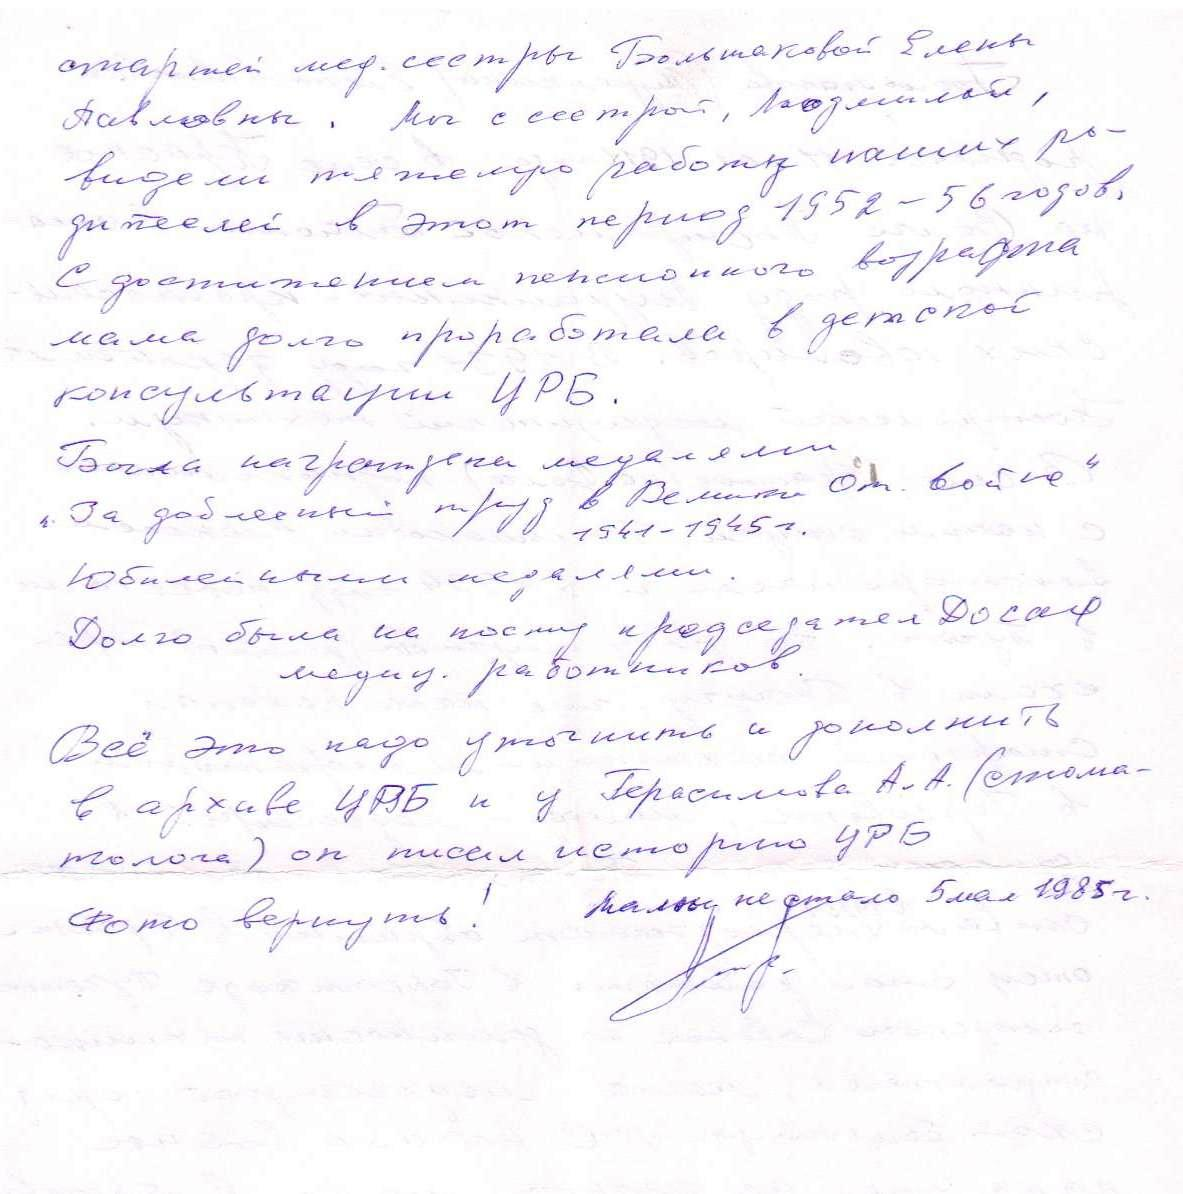 старшей мед. сестры Большаковой Елены
Павловны. Мы с сестрой, Людмилой,
видели тяжелую работу наших ро-
дителей в этот период 1952-56 годов.
С достижением пенсионного возраста
мама долго проработала в детской
консультации ЦРБ.
Была награждена медалями
"За доблесный труд в Велики От. войне"
1941-1945 г.
Юбилейными медалями.
Долго была на посту председател Досааф
медиц. работников.
Всё это надо уточнить и дополнить
в архиве ЦРБ и у Герасимова А.А. (стома-
толога) он писал историю ЦРБ
Фото вернуть! Мамы не стало 5 мая 1985 г.